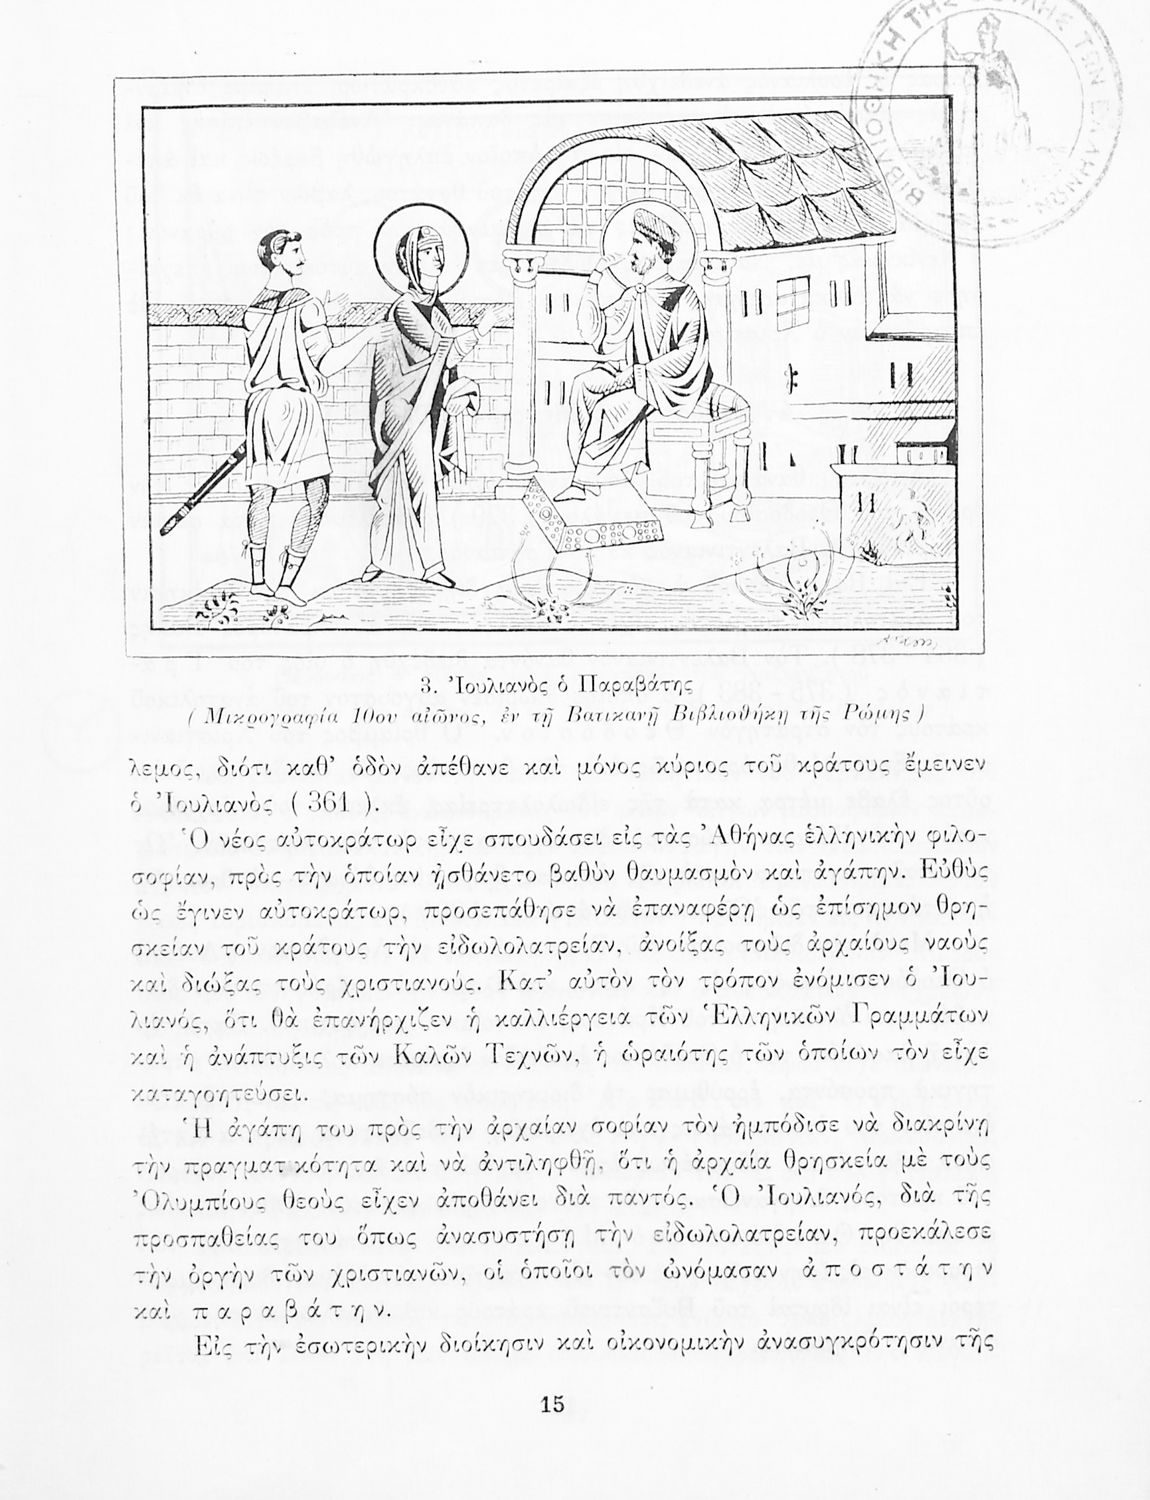 ΒΙΒΛΙΟΘΗΚΗ ΤΗΣ ΒΟΥΛΗΣ ΤΩΝ ΕΛΛΗΝΩΝ
3. Ἰουλιανὸς ὁ Παραβάτης
( Μικρογραφία 10ου αἰῶνος, ἐν τῇ Βατικανῇ Βιβλιοθήκῃ τῆς Ρώμης )
λεμος, διότι καθ’ ὁδὸν ἀπέθανε καὶ μόνος κύριος τοῦ κράτους ἔμεινεν
ὁ Ἰουλιανὸς ( 361 ).
Ὁ νέος αὐτοκράτωρ εἶχε σπουδάσει εἰς τὰς Ἀθήνας ἑλληνικὴν φιλο-
σοφίαν, πρὸς τὴν ὁποίαν ᾐσθάνετο βαθὺν θαυμασμὸν καὶ ἀγάπην. Εὐθὺς
ὡς ἔγινεν αὐτοκράτωρ, προσεπάθησε νὰ ἐπαναφέρῃ ὡς ἐπίσημον θρη-
σκείαν τοῦ κράτους τὴν εἰδωλολατρείαν, ἀνοίξας τοὺς ἀρχαίους ναοὺς
καὶ διώξας τοὺς χριστιανούς. Κατ’ αὐτὸν τὸν τρόπον ἐνόμισεν ὁ Ἰου-
λιανός, ὅτι θὰ ἐπανήρχιζεν ἡ καλλιέργεια τῶν Ἑλληνικῶν Γραμμάτων
καὶ ἡ ἀνάπτυξις τῶν Καλῶν Τεχνῶν, ἡ ὡραιότης τῶν ὁποίων τὸν εἶχε
καταγοητεύσει.
Ἡ ἀγάπη του πρὸς τὴν ἀρχαίαν σοφίαν τὸν ἠμπόδισε νὰ διακρίνῃ
τὴν πραγματικότητα καὶ νὰ ἀντιληφθῇ, ὅτι ἡ ἀρχαία θρησκεία μὲ τοὺς
Ὀλυμπίους θεοὺς εἶχεν ἀποθάνει διὰ παντός. Ὁ Ἰουλιανός, διὰ τῆς
προσπαθείας του ὅπως ἀνασυστήσῃ τὴν εἰδωλολατρείαν, προεκάλεσε
τὴν ὀργὴν τῶν χριστιανῶν, οἱ ὁποῖοι τὸν ὠνόμασαν ἀποστάτην
καὶ παραβάτην.
Εἰς τὴν ἐσωτερικὴν διοίκησιν καὶ οἰκονομικὴν ἀνασυγκρότησιν τῆς
15